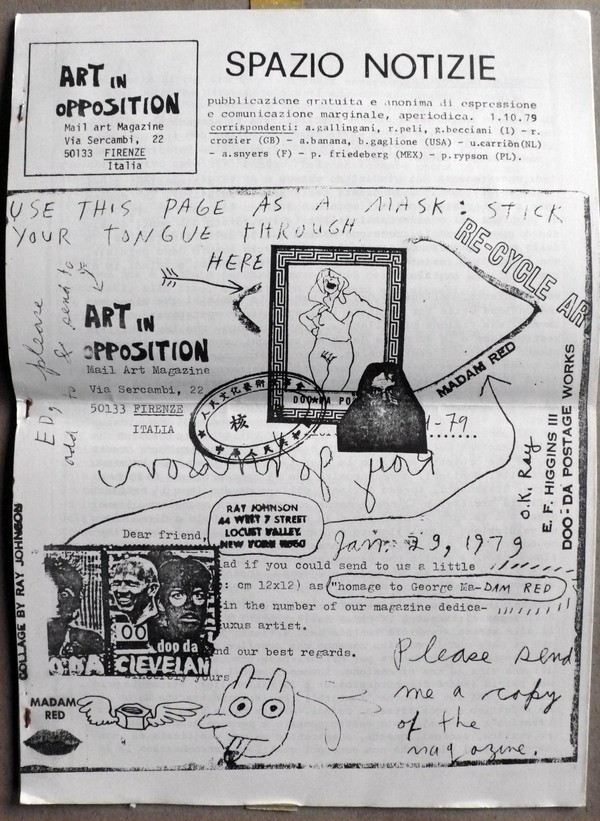 ART IN
OPPOSITION
Mail art Magazine
Via Sercambi, 22
50133 FIRENZE
Italia
SPAZIO NOTIZIE
pubblicazione gratuita e anonima di espressione
e comunicazione marginale, aperiodica. 1.10.79
corrispondenti: a.gallingani, r.peli, g.becciani (I) - r.
crozier (GB) - a.banana, b.gaglione (USA) - u.carriòn(NL)
- a.snyers (F) - p. friedeberg (MEX) - p.rypson (PL).
USE THIS PAGE AS A MASK: STICK
YOUR TONGUE THROUGH
HERE
RE-CYCLE AR
ED, please
add to & send to
ART IN
OPPOSITION
Mail Art Magazine
Via Sercambi, 22
50133 FIRENZE
ITALIA
DOO DA PO
MADAM RED
核
-79
RAY JOHNSON
44 WEST 7 STREET
LOCUST VALLEY
NEW YORK 11560
O.K. Ray
E. F. HIGGINS III
DOO-DA POSTAGE WORKS
COLLAGE BY RAY JOHNSON
Dear friend,
Jan. 29, 1979
ad if you could send to us a little
: cm 12x12) as "homage to George Ma-DAM RED
in the number of our magazine dedica-
uxus artist.
nd our best regards.
sincerely yours
00
doo da
CLEVELAN
Please send
me a copy
of the
magazine.
MADAM
RED